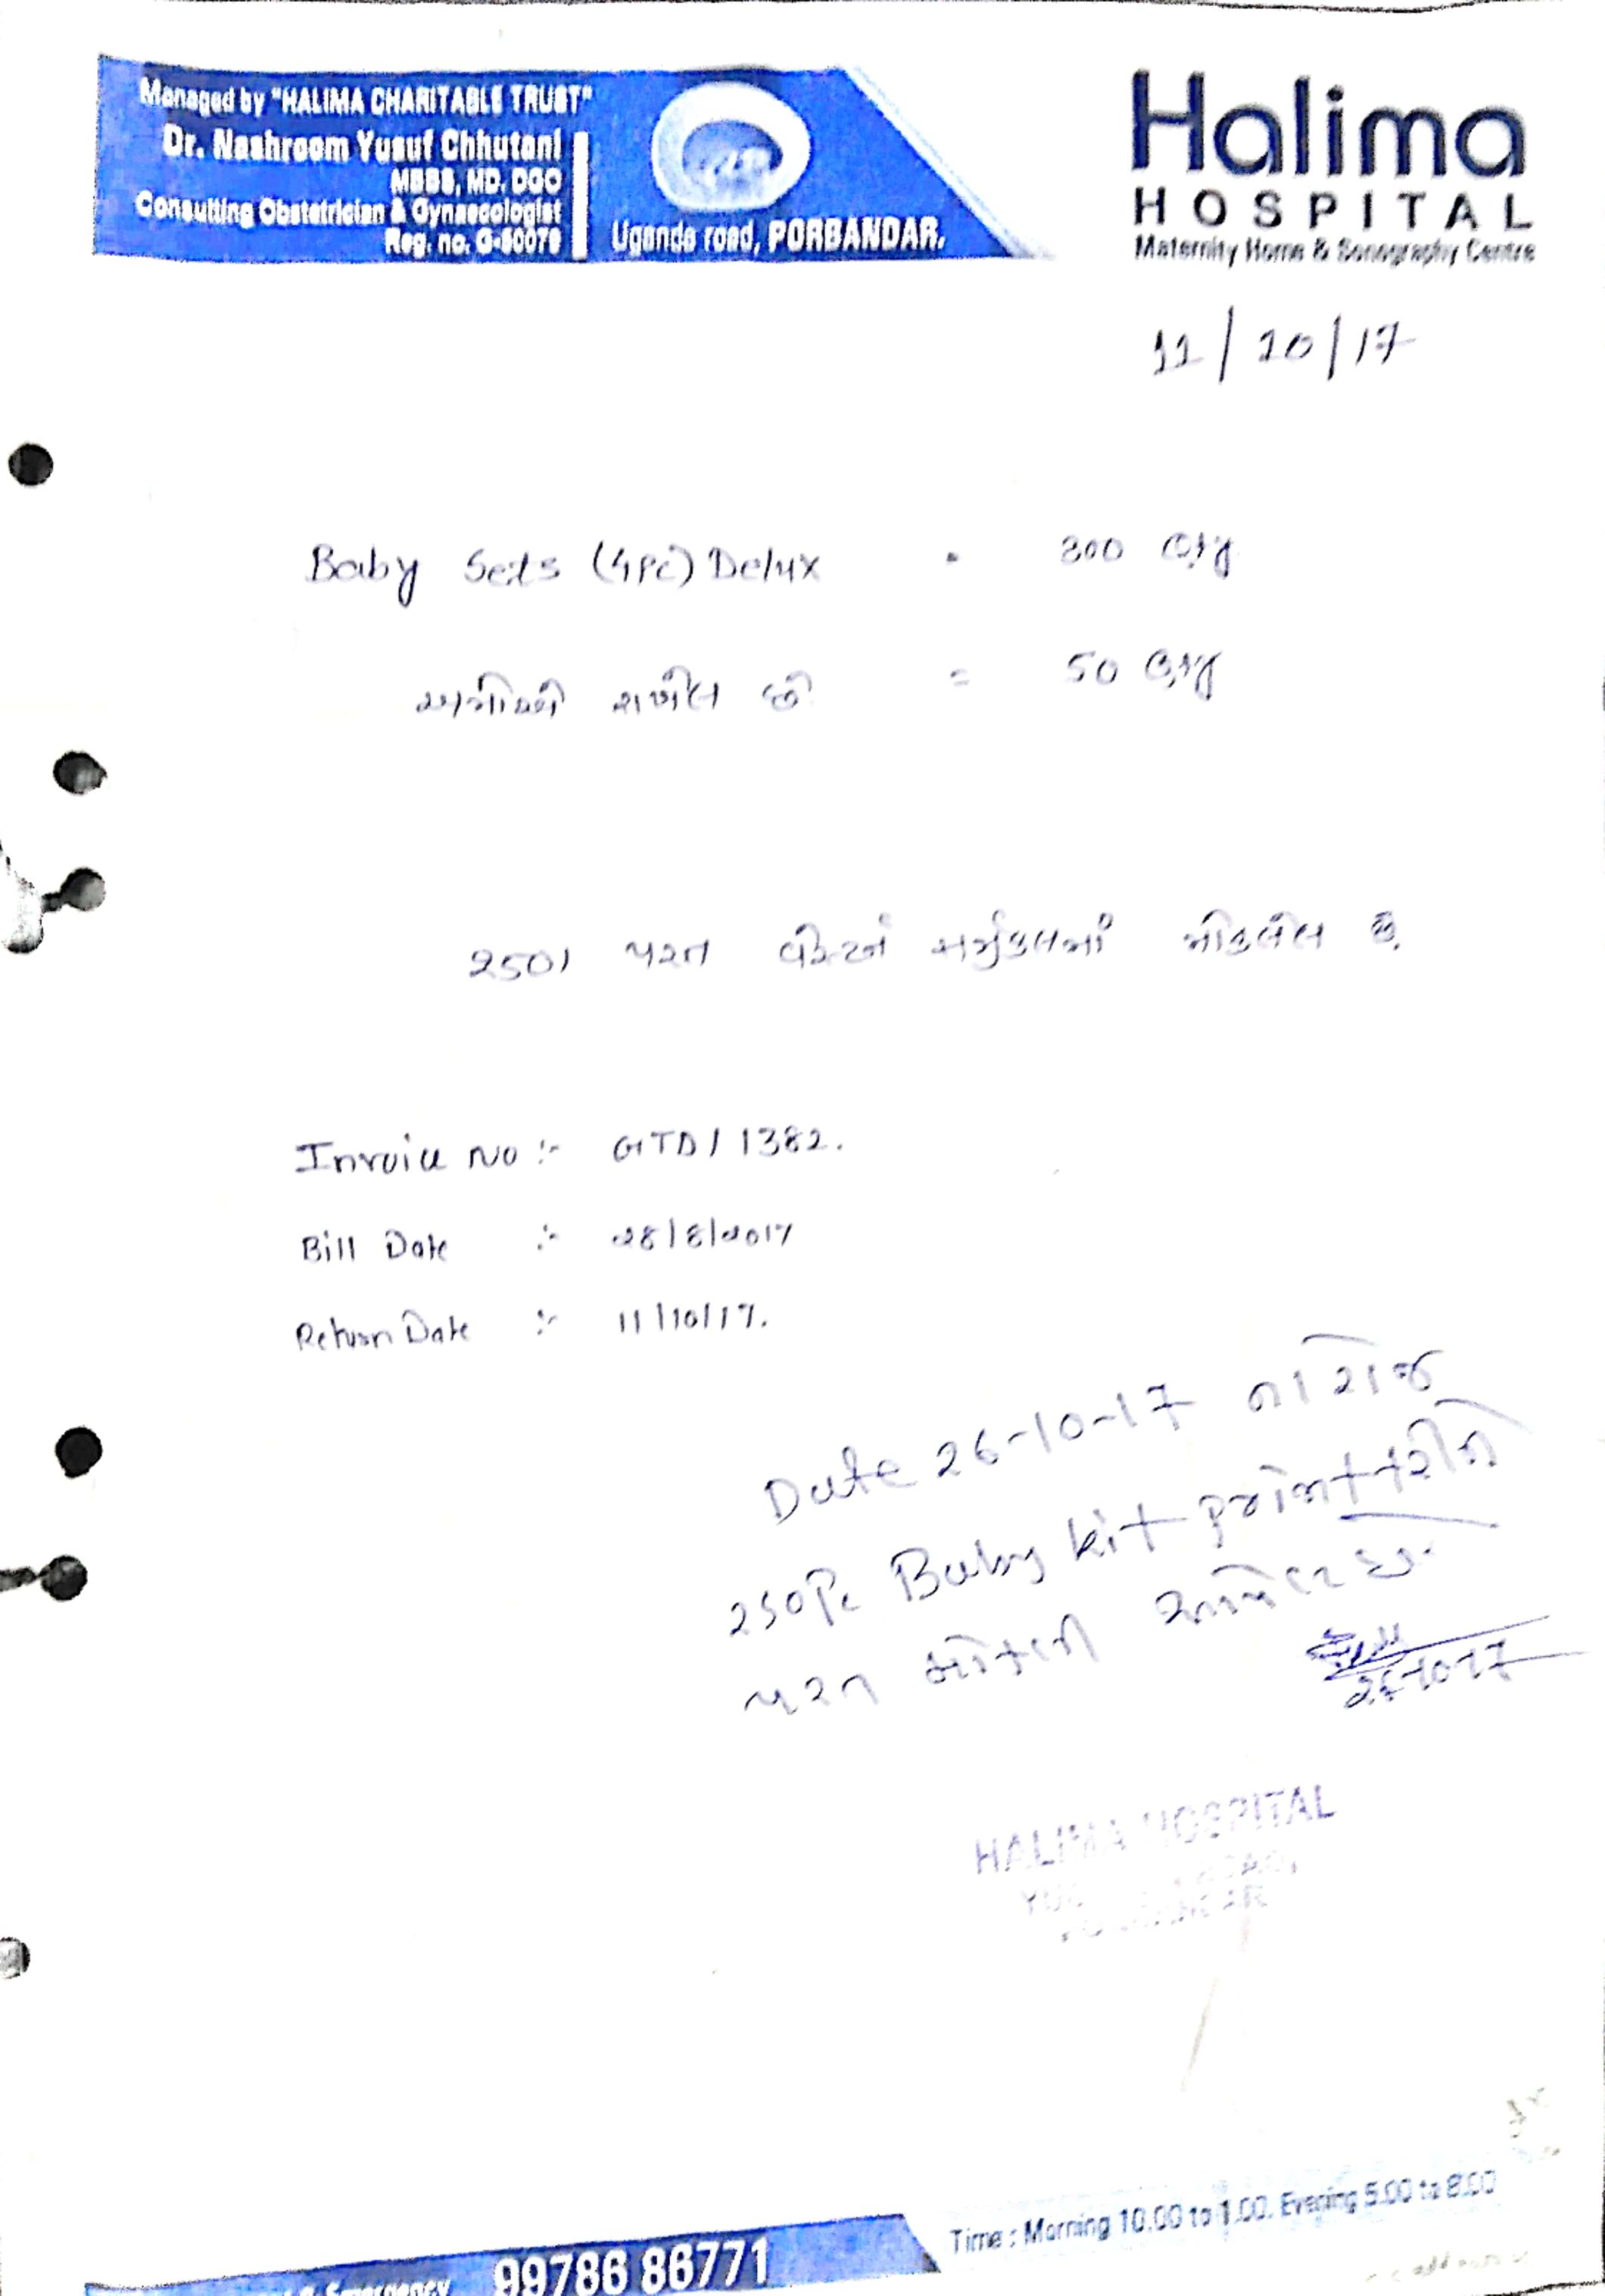 Managed by "HALIMA CHARITABLE TRUST"
Dr. Nashroom Yusuf Chhutani
MBBS, MD. DGO
Consulting Obstetrician & Gynaecologist
Reg. no. G-50079
Uganda road, PORBANDAR.
Halima
HOSPITAL
Maternity Home & Sonography Centre
11/10/17
Baby Sets (4Pc) Delux = 300 Qty
રાખેલ છે = 50 Qty
2501 પરત મોકલેલ છે.
Invoice No :- GTD/1382.
Bill Date :- 28/8/2017
Return Date :- 11/10/17.
Date 26-10-17 ના રોજ
250Pc Baby kit print
પરત આપેલ છે.
26-10-17
HALIMA HOSPITAL
99786 86771
Time : Morning 10.00 to 1.00. Evening 5.00 to 8.00